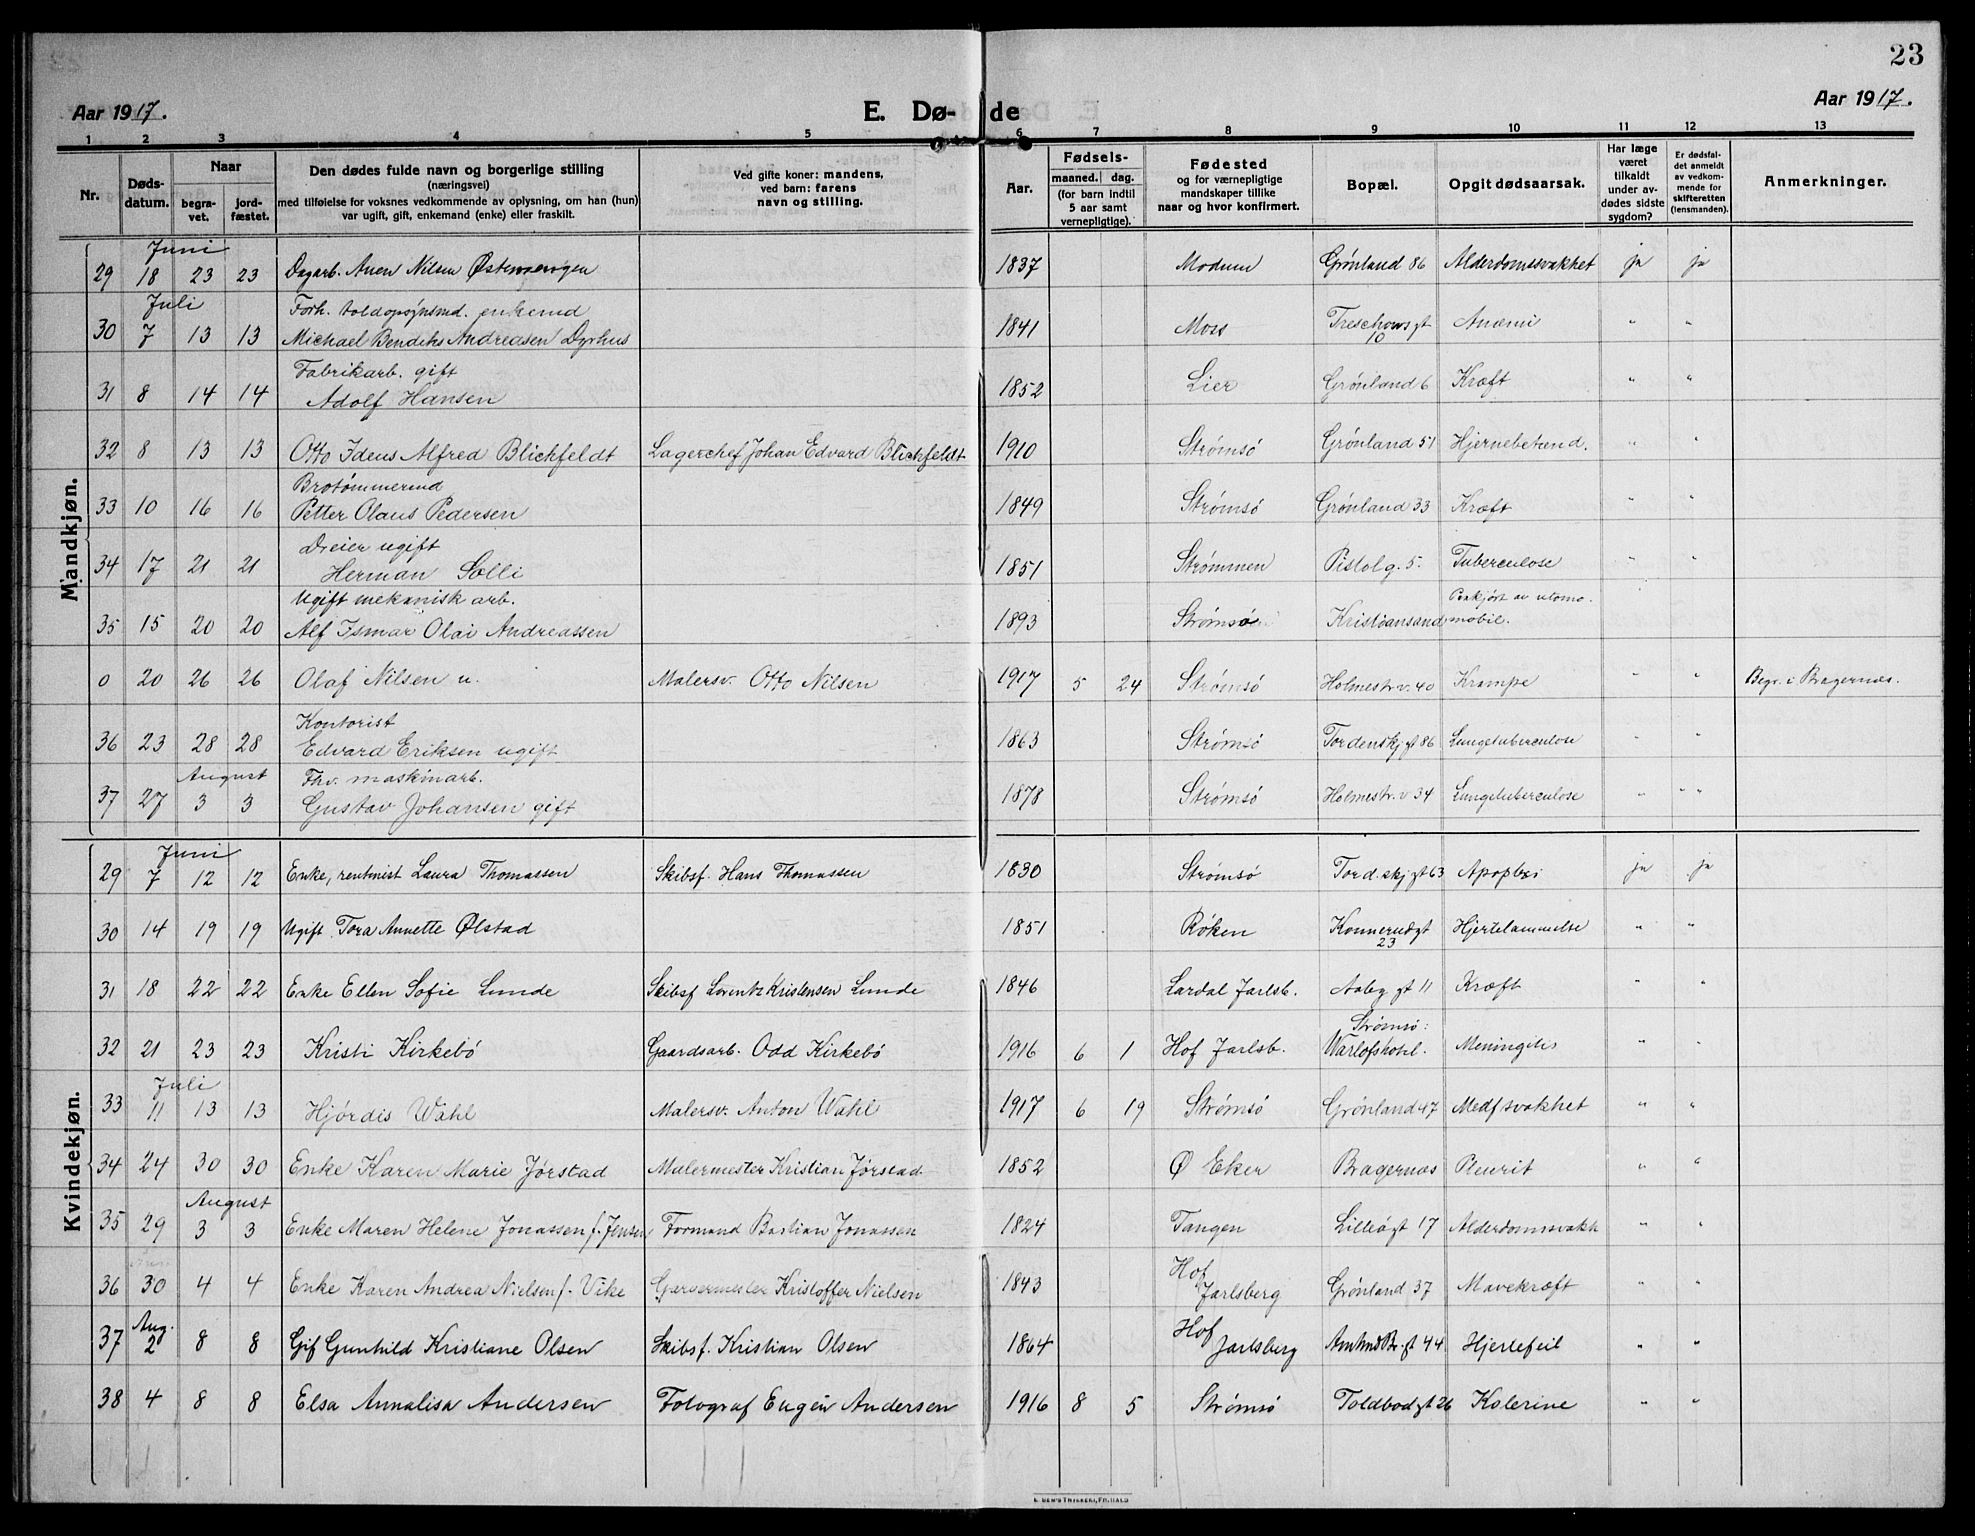 23
Aar 1917. E. Dø- de Aar 1917.
1 2 3 4 5 6 7 8 9 10 11 12 13
Nr. Døds-datum. Naar begra-vet. jord-fæstet. Den dødes fulde navn og borgerlige stilling (næringsvei) med tilføielse for voksnes vedkommende av oplysning, om han (hun) var ugift, gift, enkemand (enke) eller fraskilt. Ved gifte koner: mandens, ved barn: farens navn og stilling. Aar. Fødsels- maaned. dag. (for barn indtil 5 aar samt vernepligtige). Fødested og for værnepligtige mandskaper tillike naar og hvor konfirmert. Bopæl. Opgit dødsaarsak. Har læge været tilkaldt under av-dødes sidste sygdom? Er dødsfal-det anmeldt av vedkom-mende for skifteretten (lensmanden). Anmerkninger.
Mandkjøn.
Juni
29 18 23 23 Dagarb. Auen Nilsen 1837 Modum Grønland 86 Alderdomssvakhet ja ja
Juli Forh. toldopsynsmd. enkemd
30 7 13 13 Michael Bendiks Andreasen Dyrhus 1841 Moss Treschowsgt 10 Anæmi " "
Fabrikarb. gift
31 8 14 14 Adolf Hansen 1852 Lier Grønland 6 Kræft " "
32 8 13 13 Otto Idens Alfred Blichfeldt Lagerchef Johan Edvard Blichfeldt 1910 Strømsö Grønland 51 Hjernebetænd. " "
Brotømmermd
33 10 16 16 Petter Olaus Pedersen 1849 Strømsö Grønland 33 Kræft " "
Dreier ugift
34 17 21 21 Herman Solli 1851 Strømmen Pistolg. 5. Tuberculose " "
Ugift mekanisk arb.
35 15 20 20 Alf Ismar Olai Andreassen 1893 Strømsö Kristiansand Paakjørt av utomo.mobil.
0 20 26 26 Olaf Nilsen u. Malersv. Otto Nilsen 1917 5 24 Strømsö Holmestr.v. 40 Krampe " " Begr. i Bragernæs.
Kontorist
36 23 28 28 Edvard Eriksen ugift 1863 Strømsö Tordenskj.gt 86 Lungetuberculose " "
August Fhv. maskinarb.
37 27 3 3 Gustav Johansen gift 1878 Strømsö Holmestr.v 34 Lungetuberculose " " "
Kvindekjøn.
Juni
29 7 12 12 Enke, rentenist Laura Thomassen Skibsf. Hans Thomassen 1830 Strømsö Tord.skj.gt 63 Apoplexi ja ja
30 14 19 19 Ugift Tora Annette Ølstad 1851 Røken Konnerudgt 23 Hjertelammelse " "
31 18 22 22 Enke Ellen Sofie Lunde Skibsf Lorentz Kristensen Lunde 1846 Lardal Jarlsb. Aaby.gt 11 Kræft " "
32 21 23 23 Kristi Kirkebö Gaardsarb. Odd Kirkebö 1916 6 1 Hof Jarlsb. Strømsö: Warlofshotel. Meningitis " "
Juli
33 11 13 13 Hjördis Wahl Malersv. Anton Wahl 1917 6 19 Strømsö Grønland 47 Medf svakhet " "
34 24 30 30 Enke Karen Marie Jørstad Malermester Kristian Jørstad 1852 Ø Eker Bragernæs Pleurit " "
August
35 29 3 3 Enke Maren Helene Jonassen f. Jensen Formand Bastian Jonassen 1824 Tangen Lilleögt 17 Alderdomssvakh " "
36 30 4 4 Enke Karen Andrea Nielsen f. Vike Garvermester Kristoffer Nielsen 1843 Hof Jarlsberg Grønland 37 Mavekræft " "
Aug.
37 2 8 8 Gif Gunhild Kristiane Olsen Skibsf. Kristian Olsen 1864 Hof Jarlsberg AmtmdBr.gt 44 Hjertefeil " "
38 4 8 8 Elsa Annalisa Andersen Fotograf Eugén Andersen 1916 8 5 Strømsö Toldbodgt 26 Kolerine " "